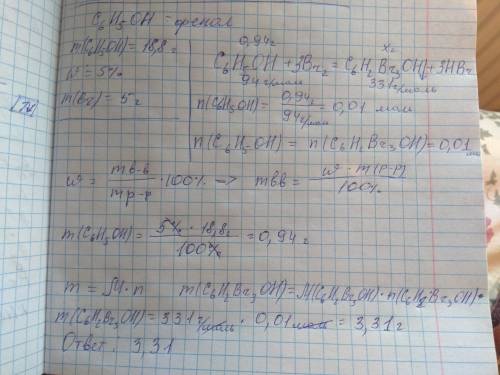 C₆H₅OH = фенол
m(C₆H₅OH) = 18,8 г
ω = 5%
m(Br₂) = 5 г
0,94г xг
C₆H₅OH + 3Br₂ = C₆H₂Br₃OH + 3HBr
94 г/моль 331 г/моль
n(C₆H₅OH) = 0,94г / 94 г/моль = 0,01 моль
n(C₆H₅OH) = n(C₆H₂Br₃OH) = 0,01 моль
ω = mв-в / mр-р · 100% —> mвв = ω · m(р-р) / 100%
m(C₆H₅OH) = 5% · 18,8г / 100% = 0,94 г
m = M · n m(C₆H₂Br₃OH) = M(C₆H₂Br₃OH) · n(C₆H₂Br₃OH) =
m(C₆H₂Br₃OH) = 331 г/моль · 0,01 моль = 3,31 г
Ответ: 3,31